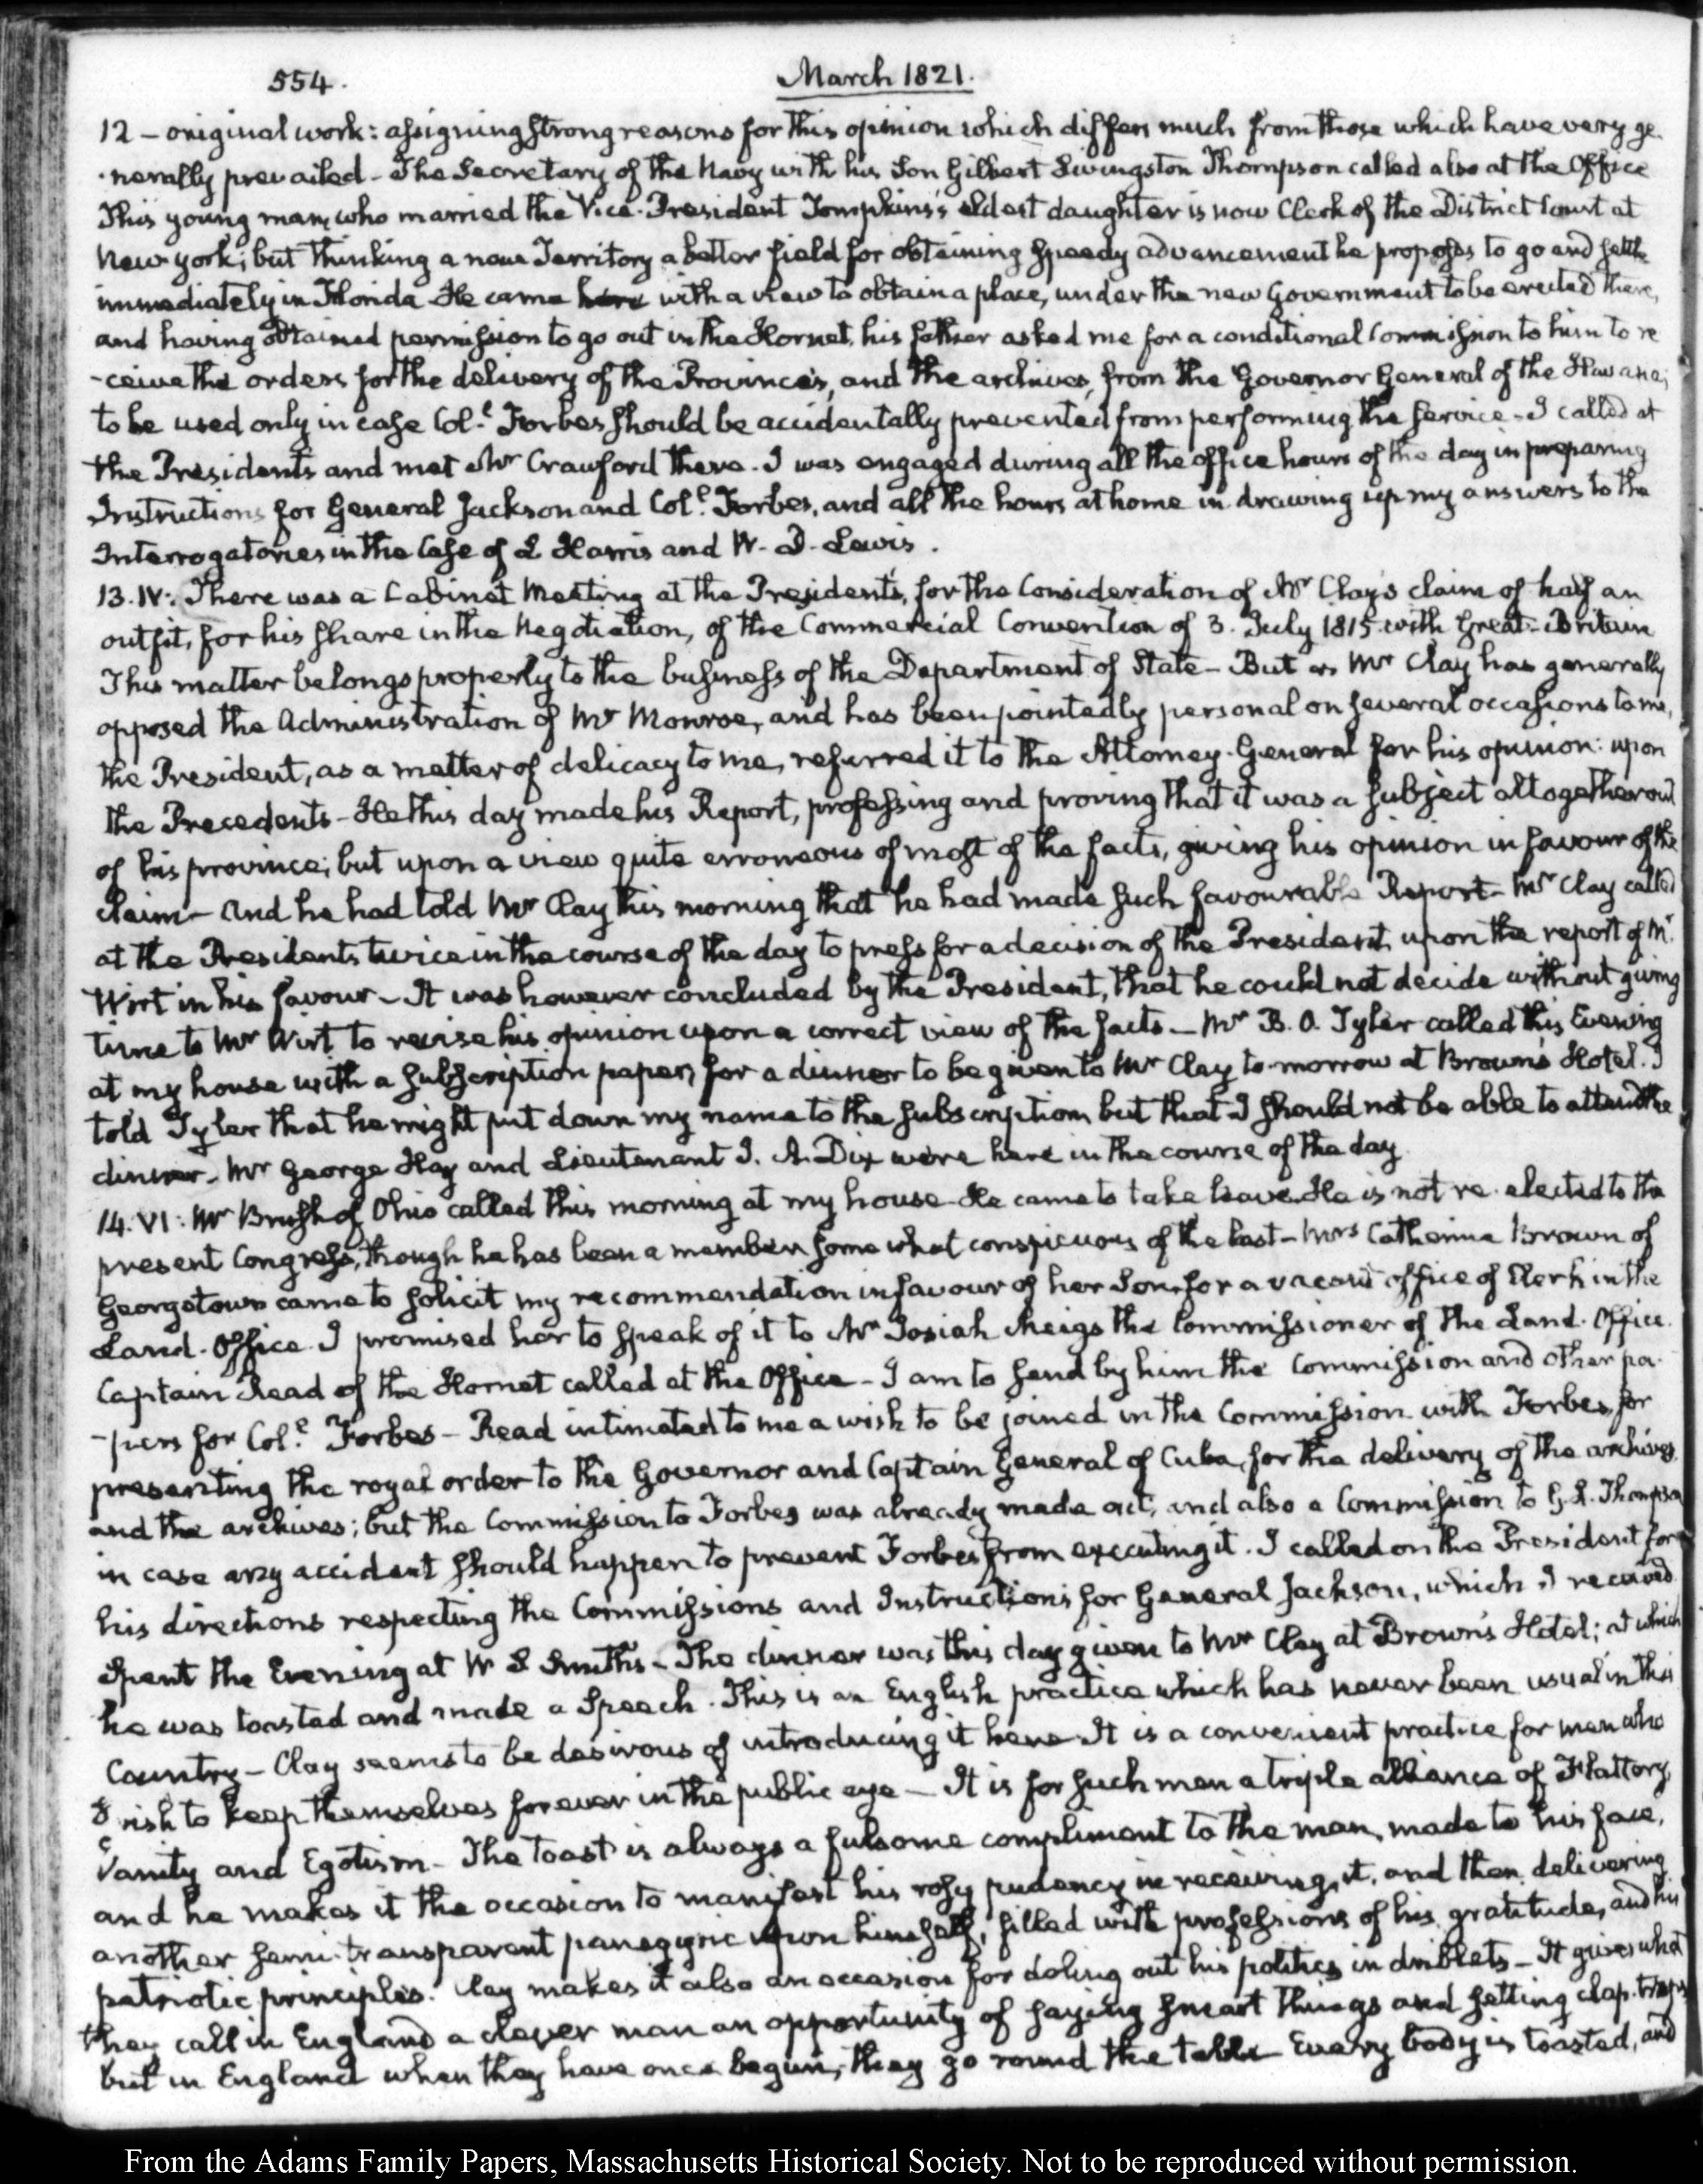 554.
March 1821.
12 - original work: assigning strong reasons for this opinion which differs much from those which have very ge-
-nerally prevailed - The Secretary of the Navy with his Son Gilbert Livingston Thompson called also at the Office
This young man, who married the Vice-President Tompkins's eldest daughter is now Clerk of the District Court at
New York; but thinking a new Territory a better field for obtaining speedy advancement he proposes to go and settle
immediately in Florida He came here with a view to obtain a place, under the new Government to be erected there,
and having obtained permission to go out in the Hornet, his father asked me for a conditional Commission to him to re
-ceive the orders for the delivery of the Provinces, and the archives, from the Governor General of the Havana;
to be used only in case Col.l Forbes should be accidentally prevented from performing the service - I called at
the Presidents and met Mr Crawford there. I was engaged during all the office hours of the day in preparing
Instructions for General Jackson and Col.l Forbes, and all the hours at home in drawing up my answers to the
Interrogatories in the Case of L Harris and W. D. Lewis.
13. IV: There was a Cabinet Meeting at the President's, for the Consideration of Mr Clay's claim of half an
outfit, for his share in the Negotiation, of the Commercial Convention of 3. July 1815 with Great-Britain
This matter belongs properly to the business of the Department of State - But as Mr Clay has generally
opposed the Administration of Mr Monroe, and has been pointedly personal on several occasions to me,
the President, as a matter of delicacy to me, referred it to the Attorney-General for his opinion: upon
the Precedents - He this day made his Report, professing and proving that it was a subject altogether out
of his province; but upon a view quite erroneous of most of the facts, giving his opinion in favour of the
claim - And he had told Mr Clay this morning that he had made such favourable Report - Mr Clay called
at the Presidents twice in the course of the day to press for a decision of the President, upon the report of Mr
Wirt in his favour - It was however concluded by the President, that he could not decide without giving
time to Mr Wirt to revise his opinion upon a correct view of the facts - Mr B. O. Tyler called this Evening
at my house with a subscription paper, for a dinner to be given to Mr Clay to-morrow at Brown's Hotel. I
told Tyler that he might put down my name to the subscription, but that I should not be able to attend the
dinner - Mr George Hay and Lieutenant J. A. Dix were here in the course of the day
14. VI: Mr Brush of Ohio called this morning at my house He came to take leave. He is not re-elected to the
present Congress, though he has been a member somewhat conspicuous of the last - Mrs Catherine Brown of
Georgetown came to solicit my recommendation in favour of her Son, for a vacant office of Clerk in the
Land-Office I promised her to speak of it to Mr Josiah Meigs the Commissioner of the Land-Office.
Captain Read of the Hornet called at the Office - I am to send by him the Commission and other pa-
-pers for Col.l Forbes - Read intimated to me a wish to be joined in the Commission with Forbes, for
presenting the royal order to the Governor and Captain General of Cuba, for the delivery of the archives
and the archives; but the Commission to Forbes was already made out, and also a Commission to G. L. Thompson
in case any accident should happen to prevent Forbes from executing it. I called on the President for
his directions respecting the Commissions and Instructions for General Jackson, which I received
Spent the Evening at W S Smith's - The dinner was this day given to Mr Clay at Brown's Hotel; at which
he was toasted and made a Speech. This is an English practice which has never been usual in this
Country - Clay seems to be desirous of introducing it here. It is a convenient practice for men who
wish to keep themselves forever in the public eye - It is for such men a triple alliance of Flattery,
Vanity and Egotism - The toast is always a fulsome compliment to the man, made to his face,
and he makes it the occasion to manifest his rosy pudency in receiving it, and then delivering
another semi-transparent panegyric upon himself, filled with professions of his gratitude, and his
patriotic principles. Clay makes it also an occasion for doling out his politics in driblets - It gives what
they call in England a clever man an opportunity of saying smart things and setting clap-traps
but in England when they have once begun, they go round the table Every body is toasted, and
From the Adams Family Papers, Massachusetts Historical Society. Not to be reproduced without permission.